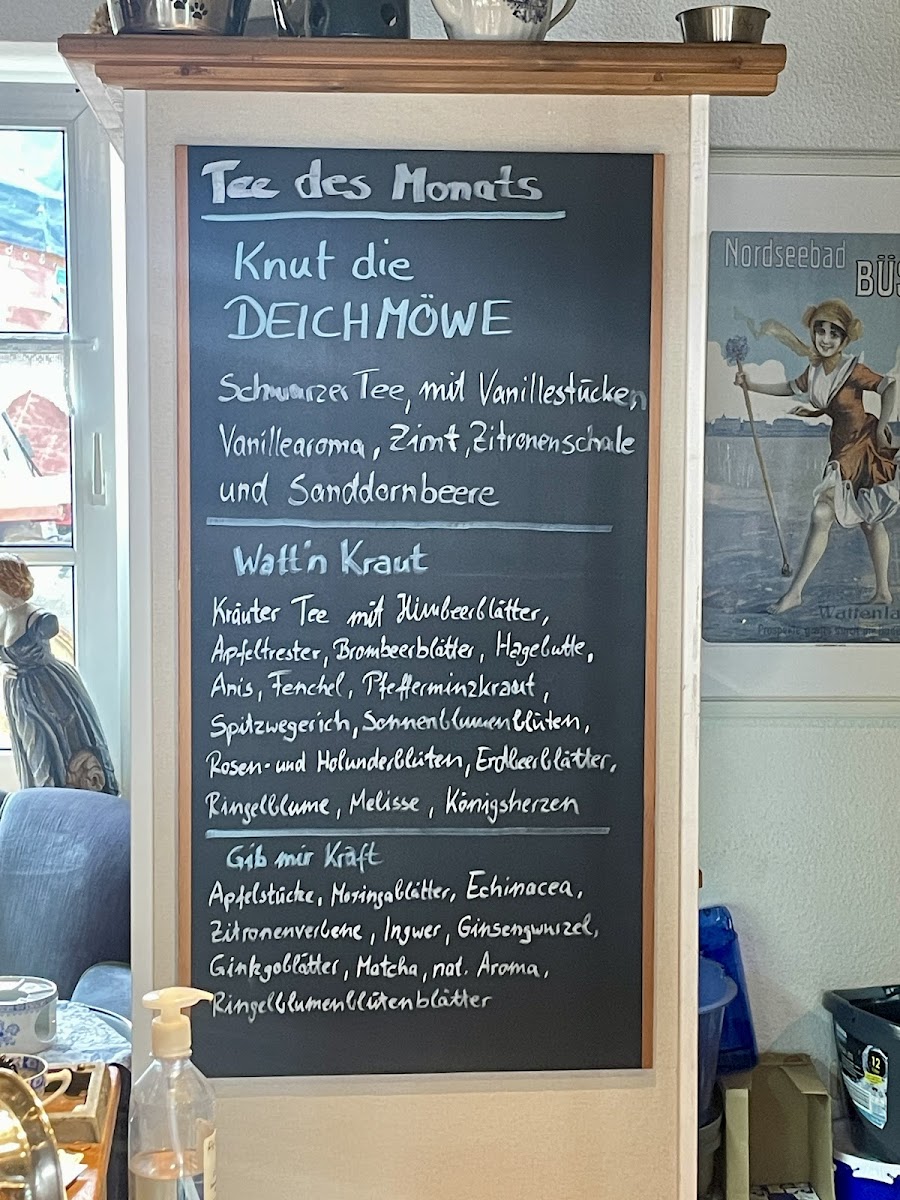 Tee des Monats
Knut die
DEICHMÖWE
Schwarzer Tee, mit Vanillestücken
Vanillearoma, Zimt, Zitronenschale
und Sanddornbeere
Watt'n Kraut
Kräuter Tee mit Himbeerblätter,
Apfeltrester, Brombeerblätter, Hagebutte,
Anis, Fenchel, Pfefferminzkraut,
Spitzwegerich, Sonnenblumenblüten,
Rosen- und Holunderblüten, Erdbeerblätter,
Ringelblume, Melisse, Königsherzen
Gib mir Kraft
Apfelstücke, Moringablätter, Echinacea,
Zitronenverbene, Ingwer, Ginsengwurzel,
Ginkgoblätter, Matcha, nat. Aroma,
Ringelblumenblütenblätter
Nordseebad
BÜS
Wattenla
12